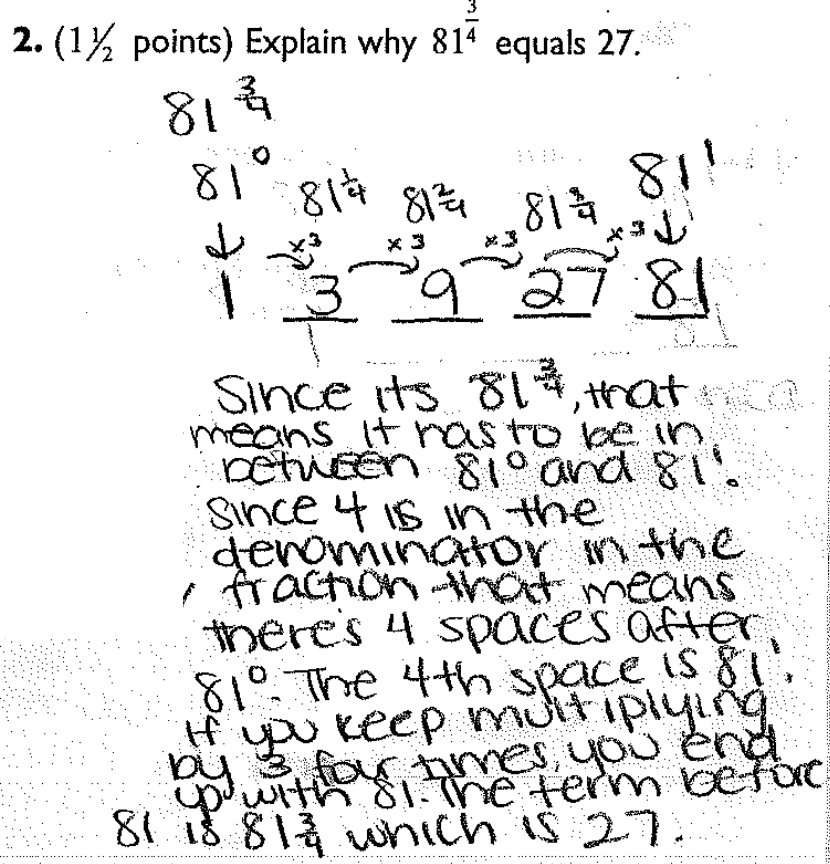 2. (1½ points) Explain why 81^(3/4) equals 27.
81^(3/4)
81^0 81^(1/4) 81^(2/4) 81^(3/4) 81^1
↓ ×3 ×3 ×3 ×3 ↓
1 3 9 27 81
Since its 81^(3/4), that
means it has to be in
between 81^0 and 81^1.
Since 4 is in the
denominator in the
fraction that means
there's 4 spaces after
81^0. The 4th space is 81^1.
If you keep multiplying
by 3 four times, you end
up with 81. The term before
81 is 81^(3/4) which is 27.